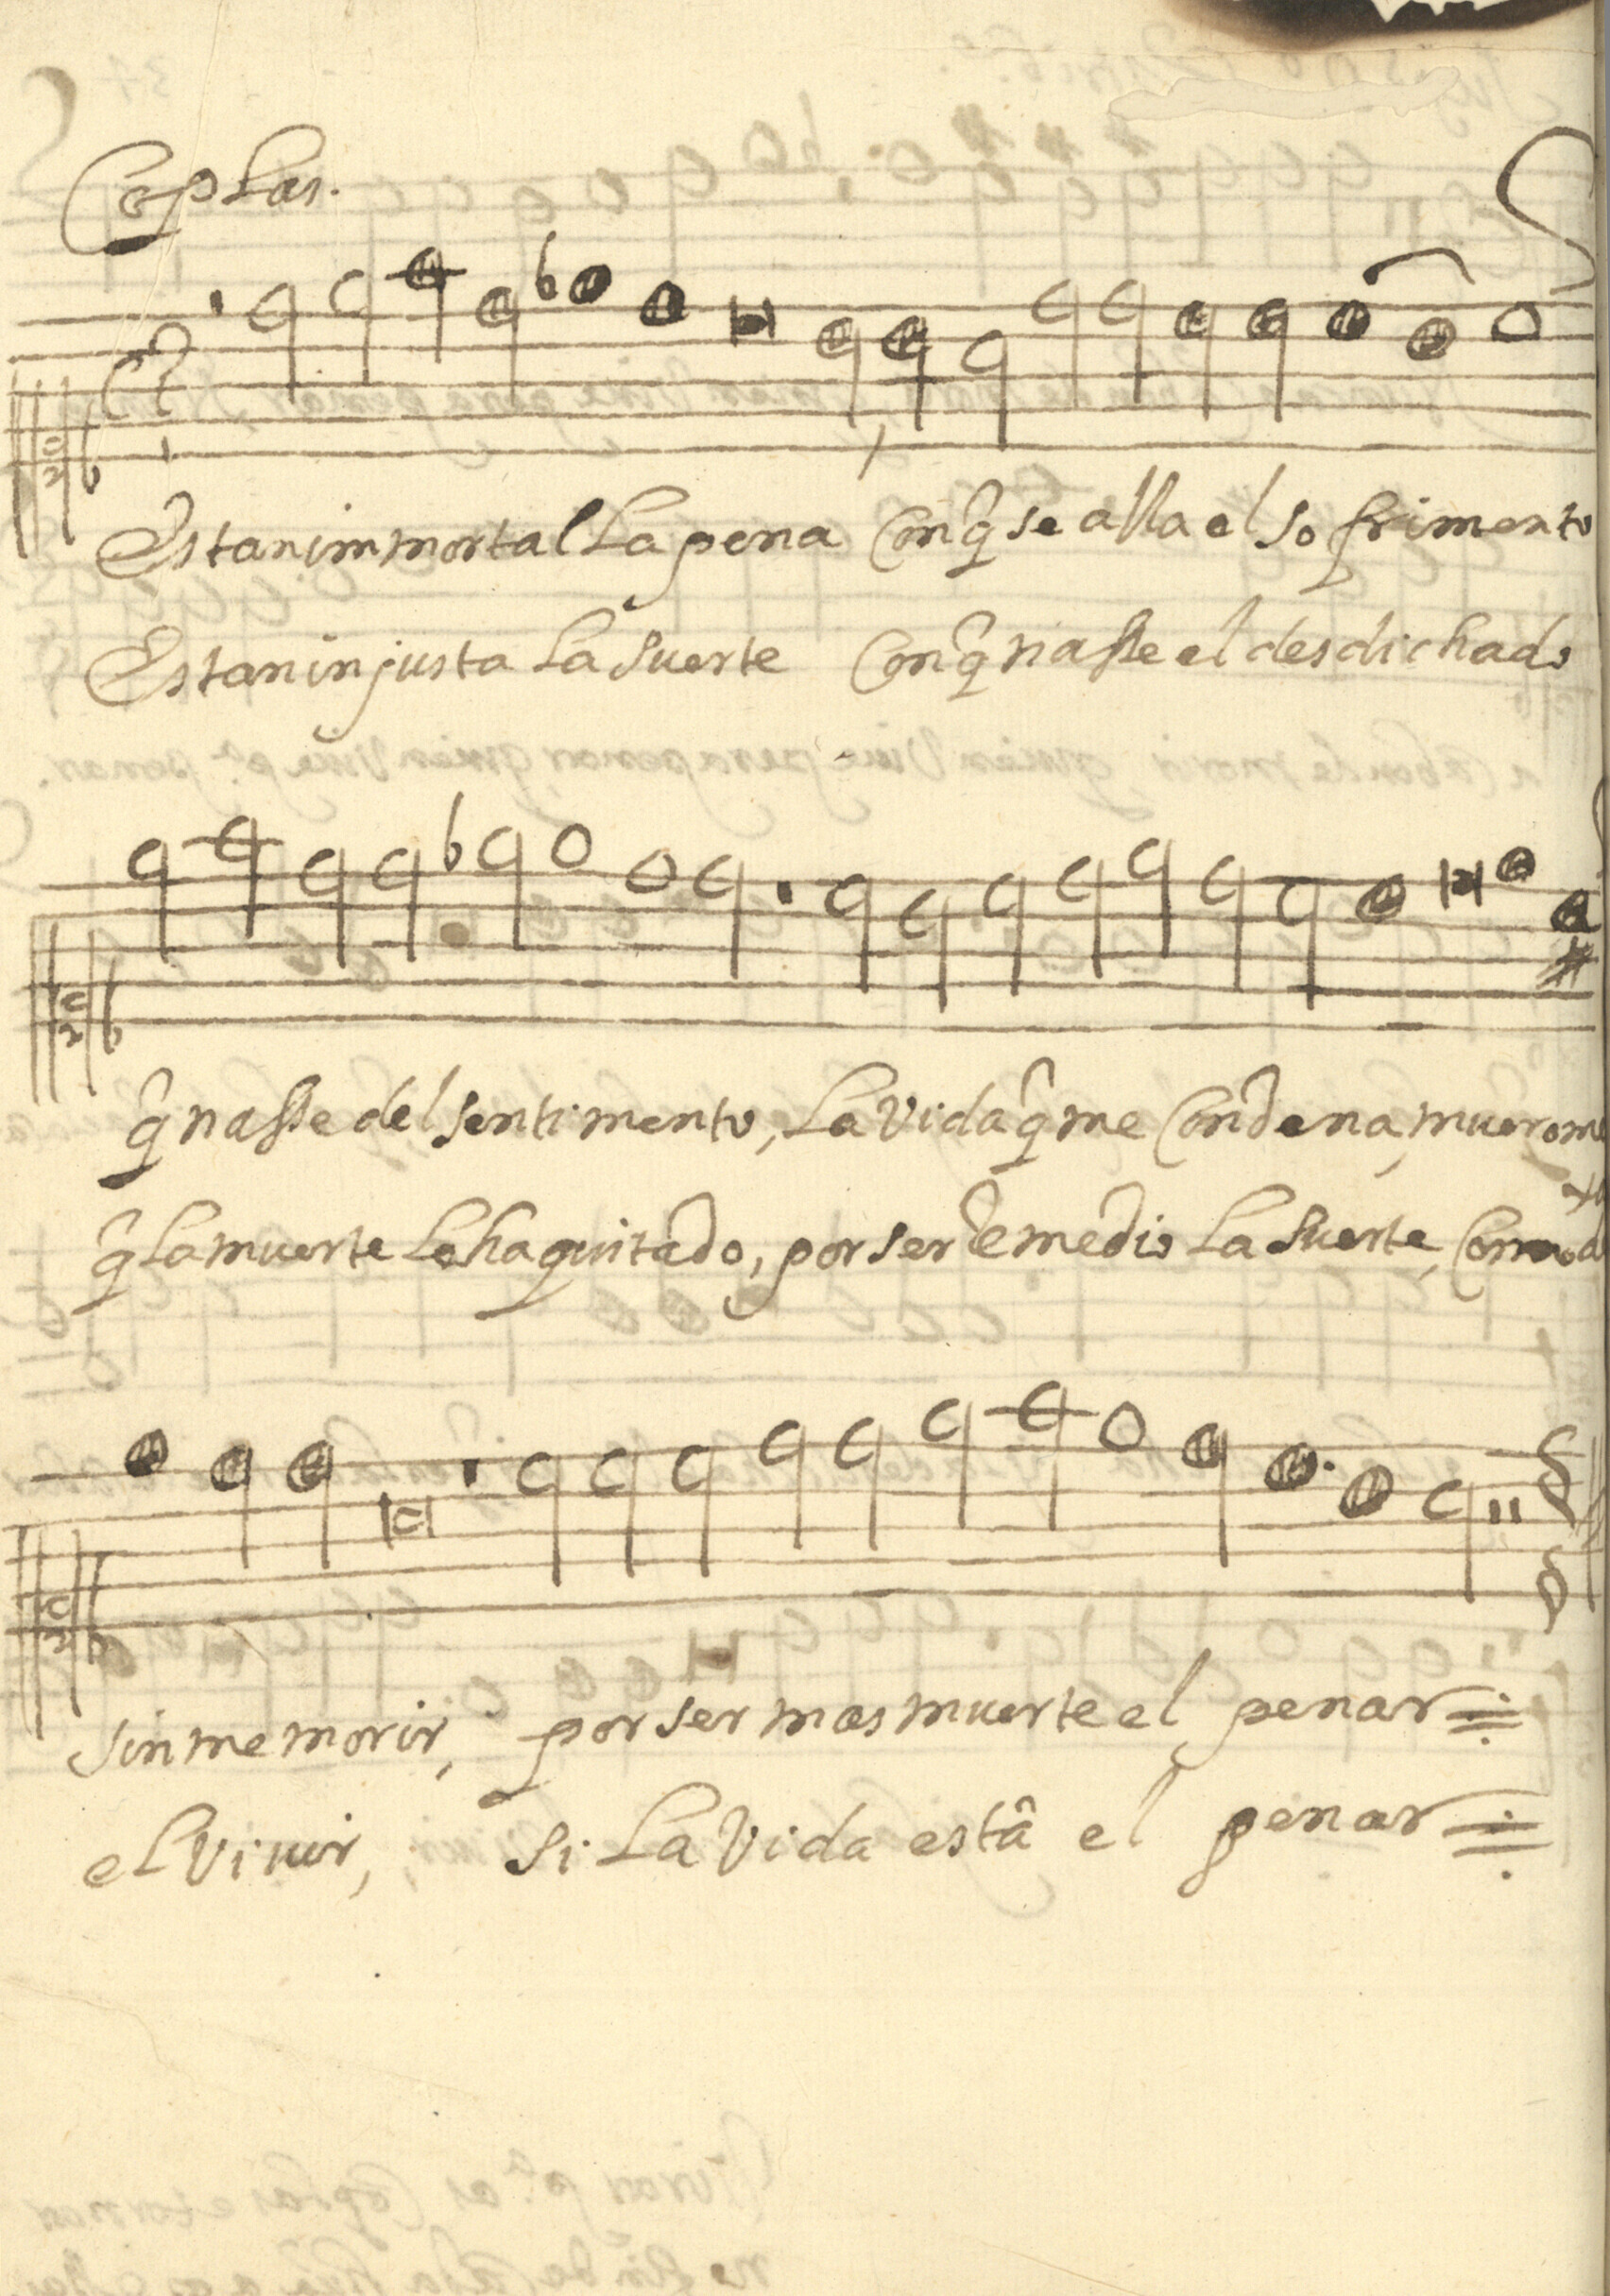 Coplas.
Es tan immortal La pena Con q̂ se alla el sofrimento
Es tan injusta La Suerte Con q̂ nasse el desdichado
q̂ nasse del sentimento, La vida q̂ me Condena, muerome
q̂ La muerte Le ha quitado, por ser Remedio La Suerte,
sin me morir, por ser mas muerte el penar
el vivir, si La Vida estâ el penar